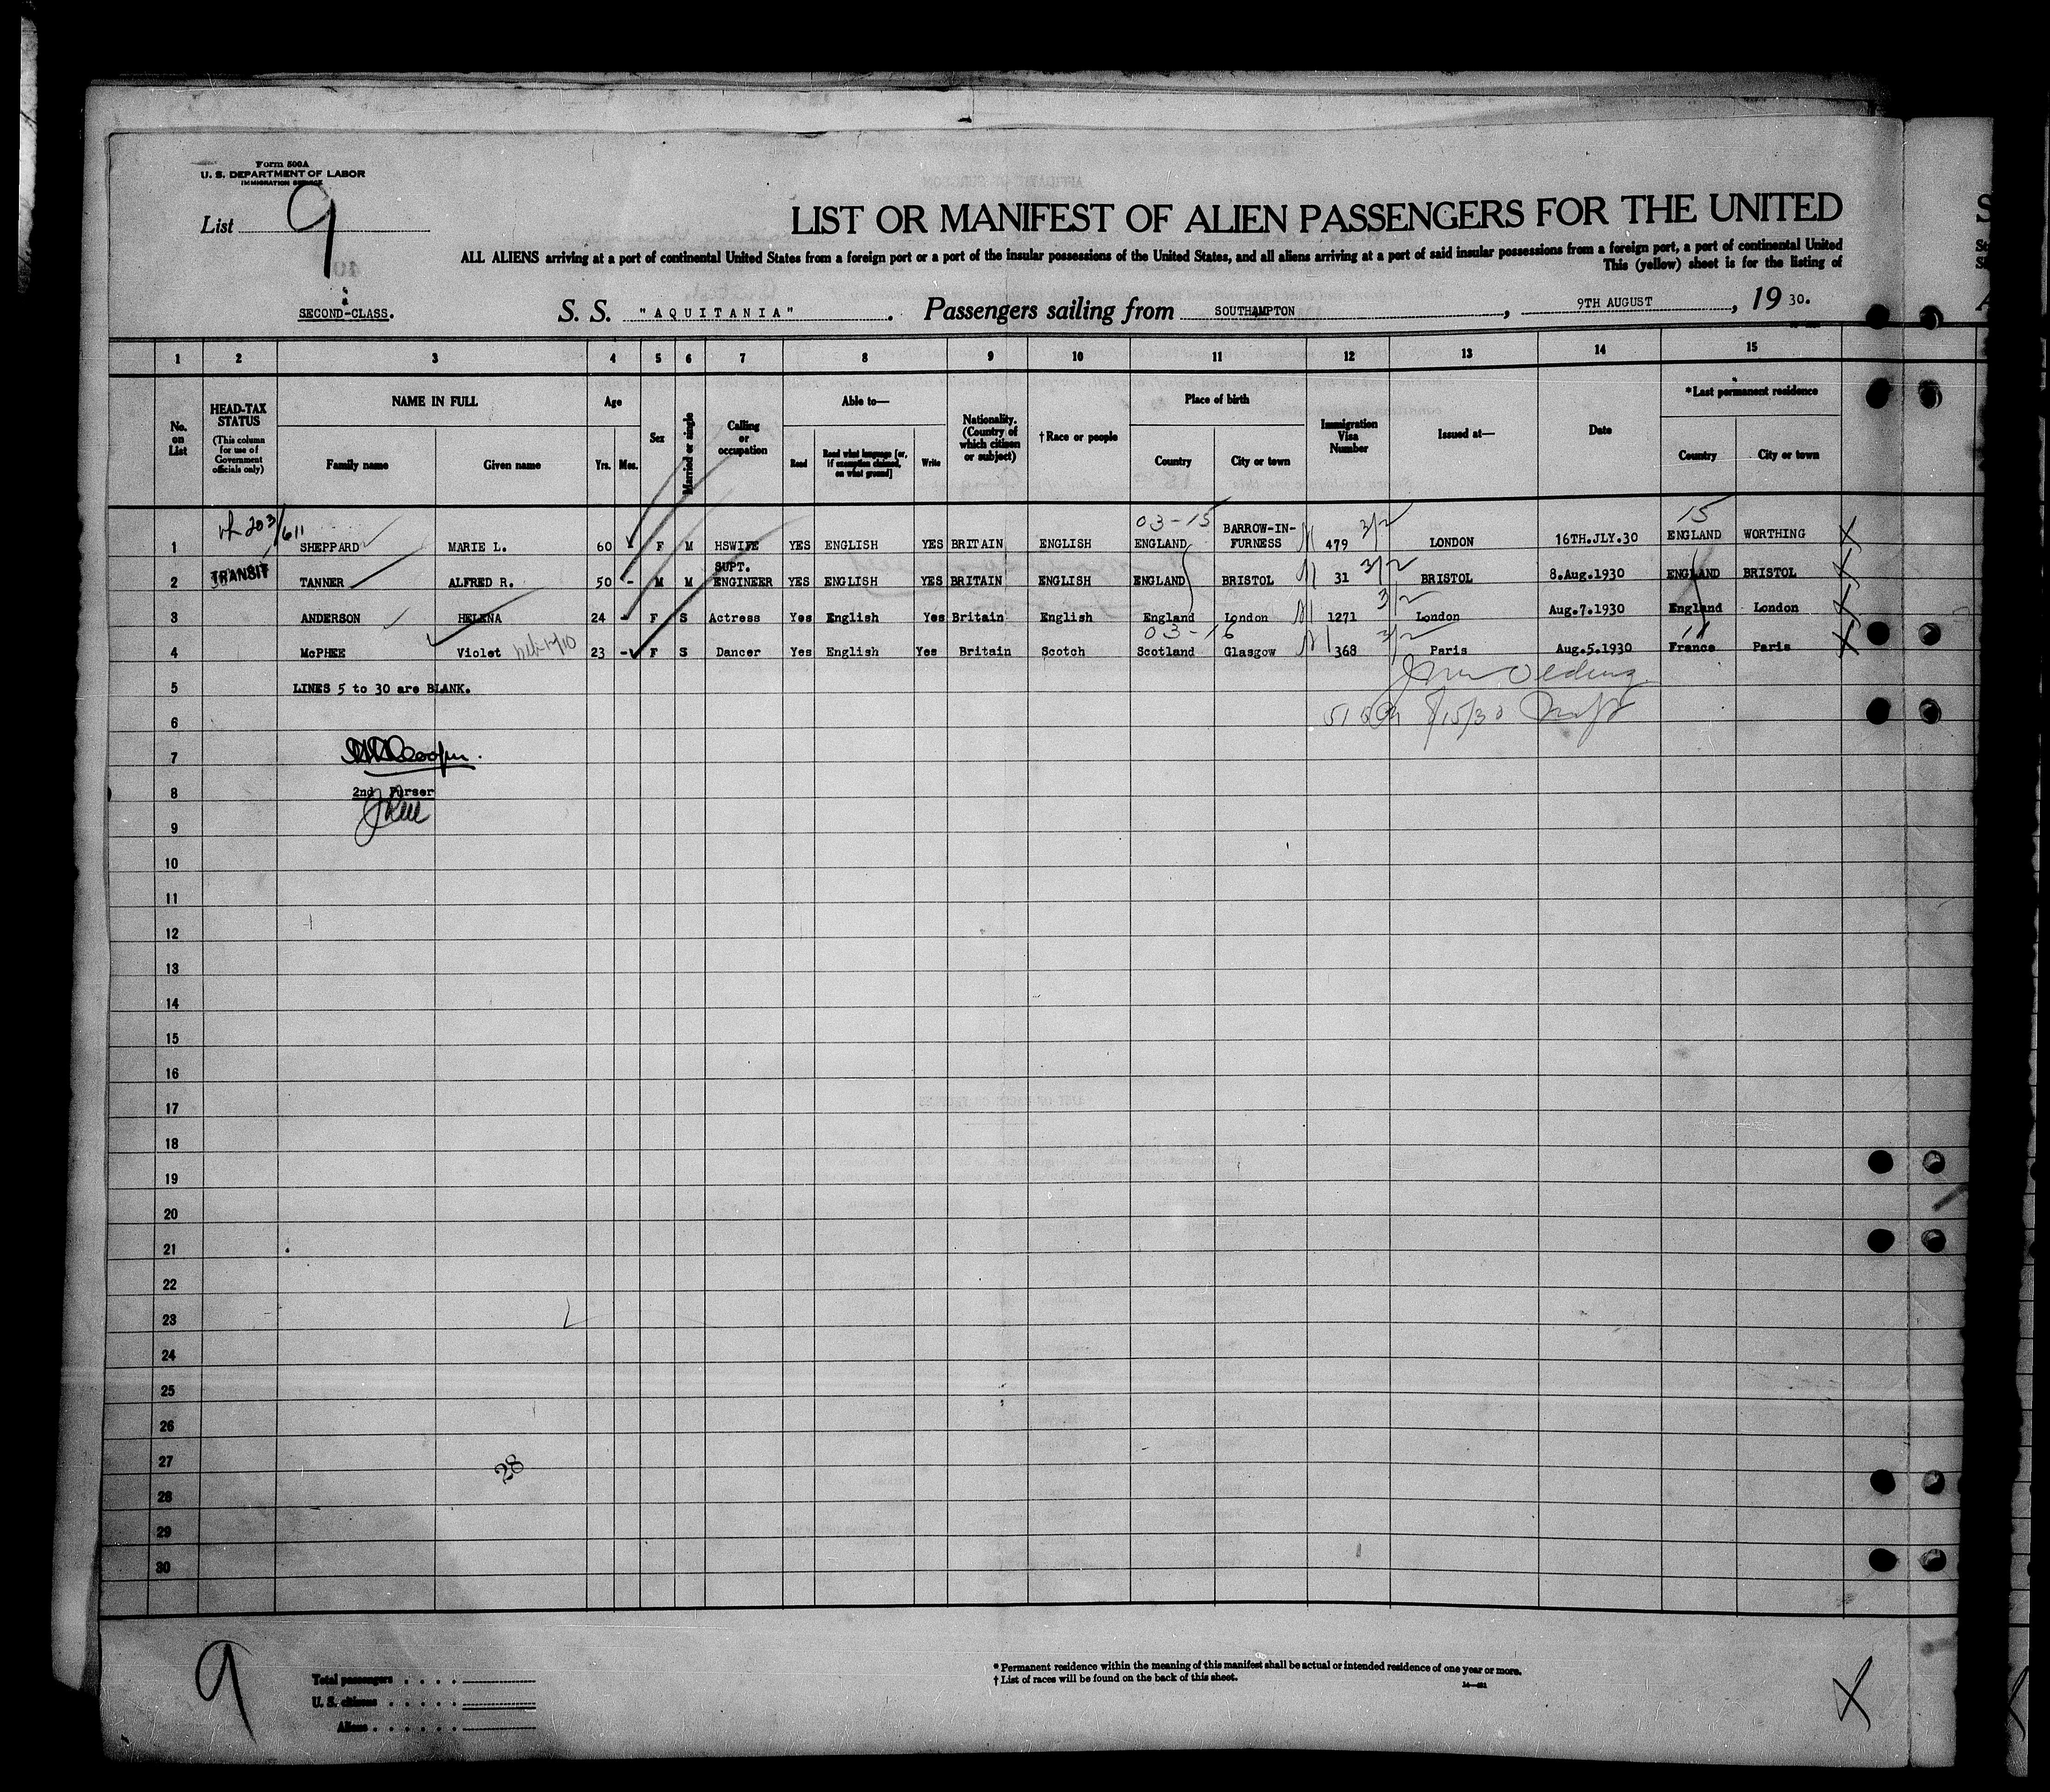 Form 500A
U. S. DEPARTMENT OF LABOR
IMMIGRATION SERVICE
List 9
LIST OR MANIFEST OF ALIEN PASSENGERS FOR THE UNITED
ALL ALIENS arriving at a port of continental United States from a foreign port or a port of the insular possessions of the United States, and all aliens arriving at a port of said insular possessions from a foreign port, a port of continental United
This (yellow) sheet is for the listing of
SECOND-CLASS. S. S. "AQUITANIA". Passengers sailing from SOUTHAMPTON, 9TH AUGUST, 19 30.
1 2 3 4 5 6 7 8 9 10 11 12 13 14 15
No. on List
HEAD-TAX STATUS
(This column for use of Government officials only)
NAME IN FULL
Family name Given name
Age
Yrs. Mos.
Sex
Married or single
Calling or occupation
Able to—
Read Read what language [or, if exemption claimed, on what ground] Write
Nationality. (Country of which citizen or subject)
† Race or people
Place of birth
Country City or town
Immigration Visa Number
Issued at—
Date
*Last permanent residence
Country City or town
03-15 3/2 15
1 203/611 SHEPPARD MARIE L. 60 F M HSWIFE YES ENGLISH YES BRITAIN ENGLISH ENGLAND BARROW-IN-FURNESS 479 LONDON 16TH.JLY.30 ENGLAND WORTHING
2 TRANSIT TANNER ALFRED R. 50 - M M SUPT. ENGINEER YES ENGLISH YES BRITAIN ENGLISH ENGLAND BRISTOL 31 3/2 BRISTOL 8.Aug.1930 ENGLAND BRISTOL
3 ANDERSON HELENA 24 - F S Actress Yes English Yes Britain English England London 1271 3/2 London Aug.7.1930 England London
03-16 3/2 11
4 McPHEE Violet 23 - F S Dancer Yes English Yes Britain Scotch Scotland Glasgow 368 Paris Aug.5.1930 France Paris
5 LINES 5 to 30 are BLANK.
6 8/15/30
7
8 2nd Purser
9
10
11
12
13
14
15
16
17
18
19
20
21
22
23
24
25
26
27 28
28
29
30
9
Total passengers
U. S. citizens
Aliens
* Permanent residence within the meaning of this manifest shall be actual or intended residence of one year or more.
† List of races will be found on the back of this sheet.